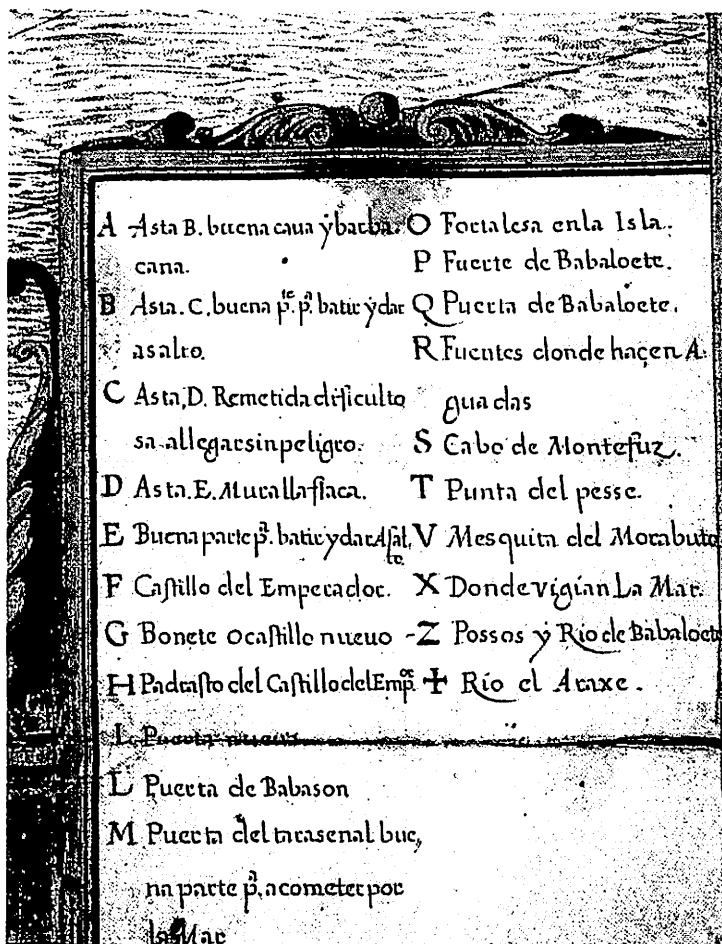 A Asta B. buena caua ẏ barba.
cana.
B Asta. C, buena p.te p.a batir ẏ dar
asalto.
C Asta, D. Remetida dificulto
sa allegar sin peligro.
D Asta. E. Muralla flaca.
E Buena parte p.a batir y dar Asal,
to.
F Castillo del Emperador.
G Bonete o castillo nueuo -
H Padrasto del Castillo del Emp.or
I. Puerta nueua
L Puerta de Babason
M Puerta del tarasenal bue,
na parte p.a acometer por
la Mar
O Fortalesa en la Isla.
P Fuerte de Babaloete.
Q Puerta de Babaloete.
R Fuentes donde haçen A.
guadas
S Cabo de Montefuz.
T Punta del pesse.
V Mesquita del Morabuto
X Donde vigian La Mar.
Z Possos ẏ Rio de Babaloete
✝ Rio el Araxe.